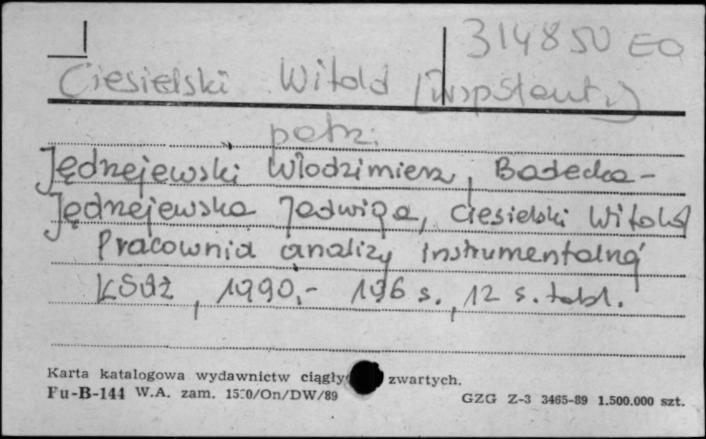 314850 EO
Ciesielski Witold (współaut.)
patrz:
Jędrzejewski Włodzimierz, Badecka-
Jędrzejewska Jadwiga, Ciesielski Witold
Pracownia analizy instrumentalnej
KSdż, 1990,- 196 s., 12 s. tabl.
Karta katalogowa wydawnictw zwartych.
Fu-B-144 W.A. zam. 1520/On/DW/89
GZG Z-3 3465-89 1.500.000 szt.